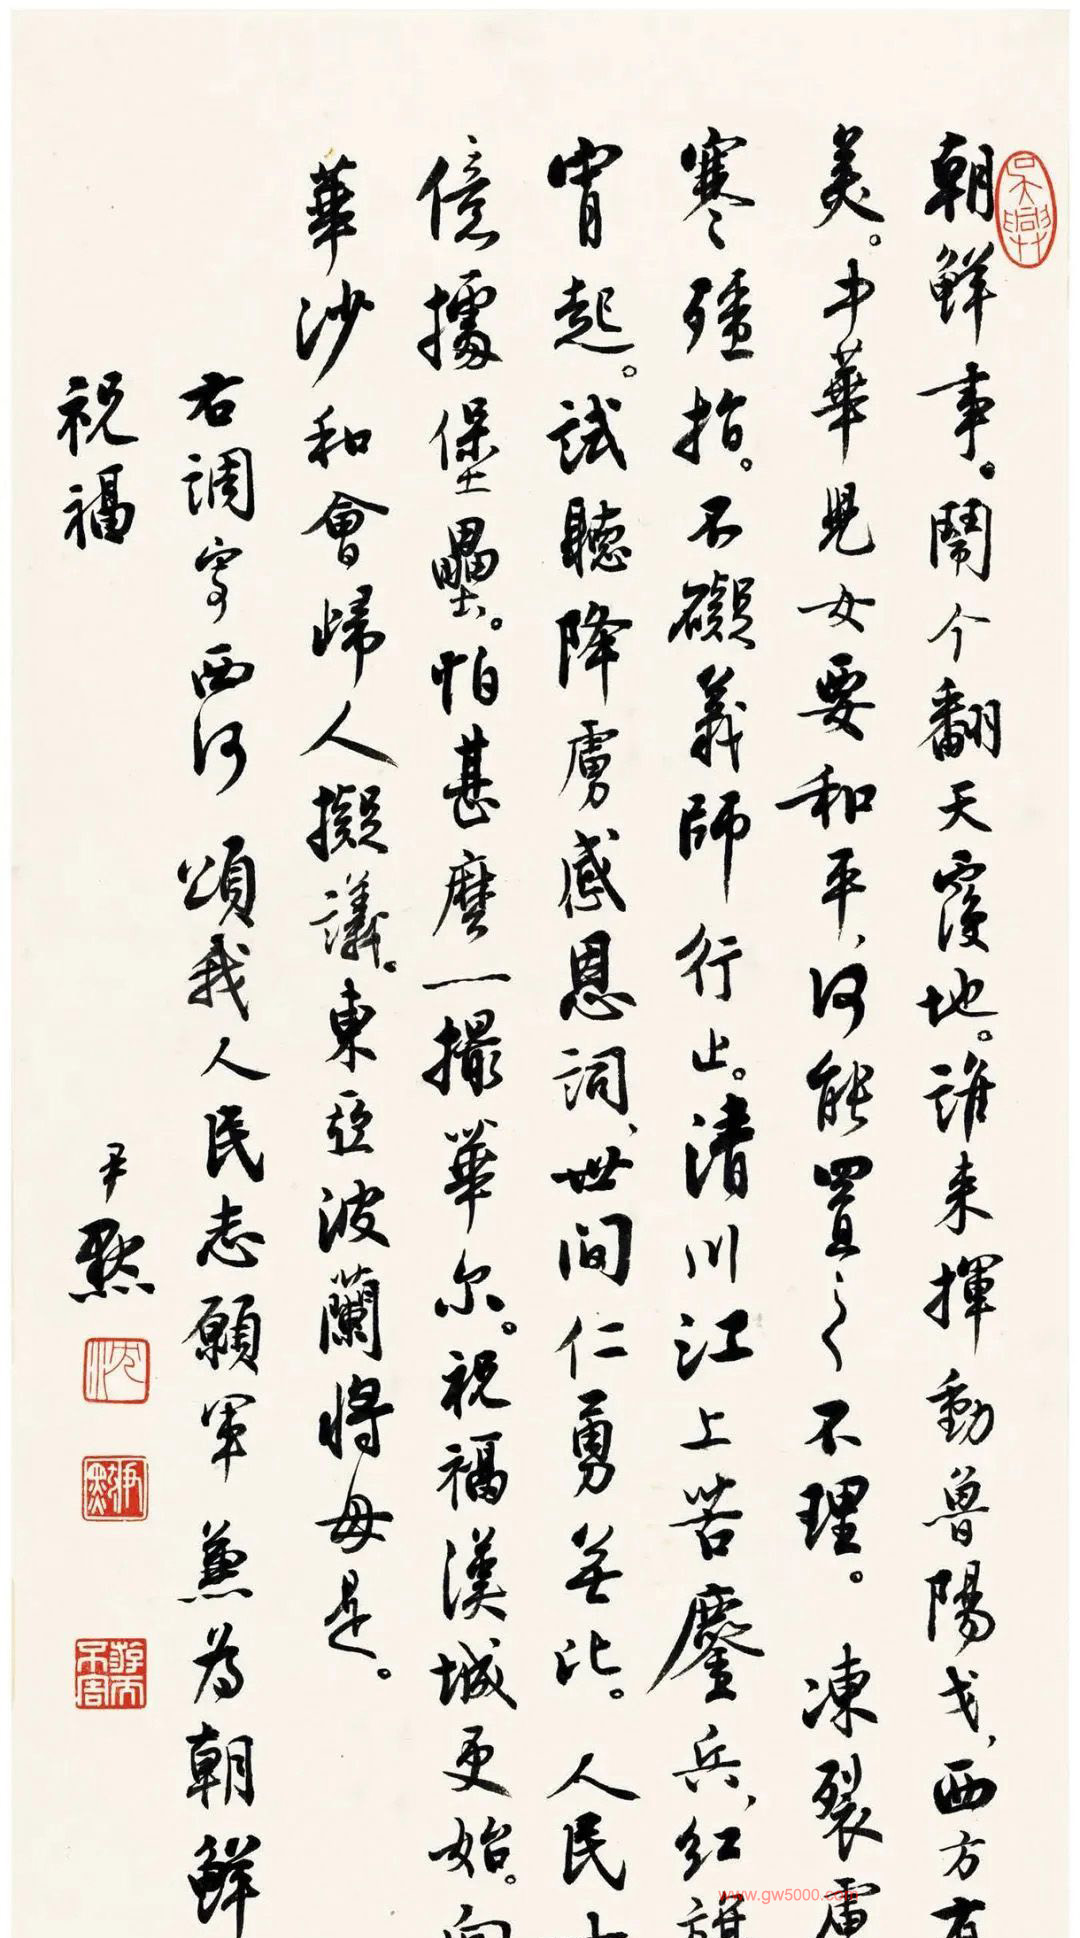 朝鮮事。鬧今翻天覆地。誰来揮動魯陽戈、西方有
美。中華児女要和平、何能置之不理。凍裂膚
寒殭指。不礙義師行止。清川江上苦鏖兵、紅旗
宵起。試聽降虜感恩詞、世间仁勇無比。人民
億擄堡壘。怕甚麼一撮華尔。祝福漢城更始。向
華沙和會歸人擬議。東亞波蘭將毋是。
右調寄西河 頌我人民志願軍兼為朝鮮
祝福
尹默
吳興
沈
尹默
www.gw5000.com